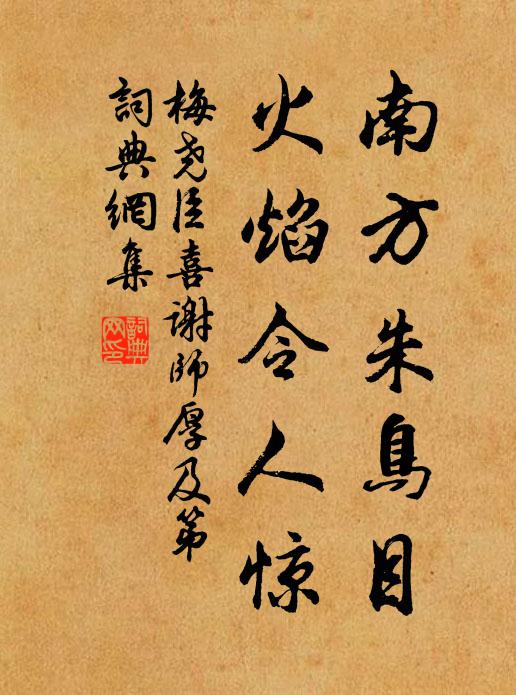 南方朱鳥目
火焰令人惊
梅尧臣喜谢師厚及第
詞典網集
詞典網印